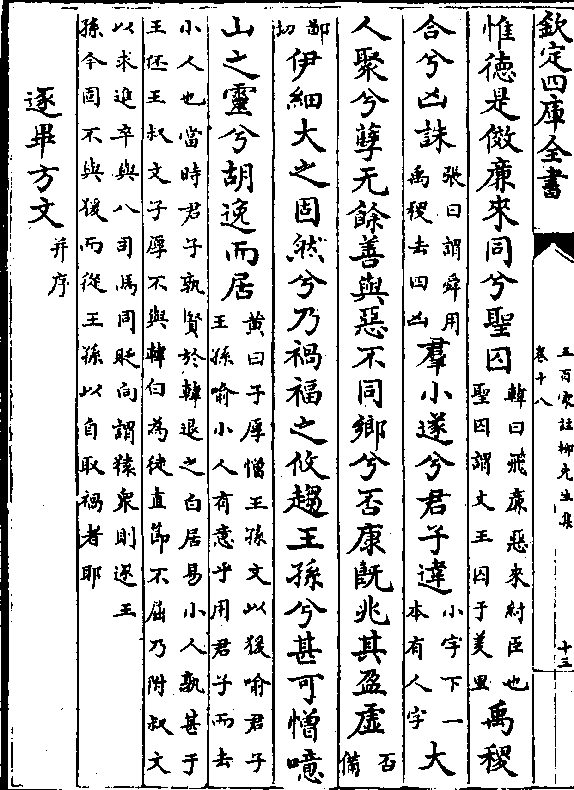 欽定四庫全書
五百家註柳先生集
卷十八
十三
惟德是傚廉來同兮聖囚韓曰飛廉惡來紂臣也聖囚謂文王囚于羑里禹稷
合兮凶誅張曰謂舜用禹稷去四凶羣小遂兮君子違小字下一本有人字大
人聚兮孽无餘善與惡不同鄉兮否康既兆其盈虛否備
鄙切伊細大之固然兮乃禍福之攸趨王孫兮甚可憎噫
山之靈兮胡逸而居黄曰子厚憎王孫文以猨喻君子王孫喻小人有意乎用君子而去
小人也當時君子孰賢於韓退之白居易小人孰甚于王伾王叔文子厚不與韓白為徒直節不屈乃附叔文
以求進卒與八司馬同貶向謂猿衆則逐王孫今固不與猨而從王孫以自取禍者耶
逐畢方文并序